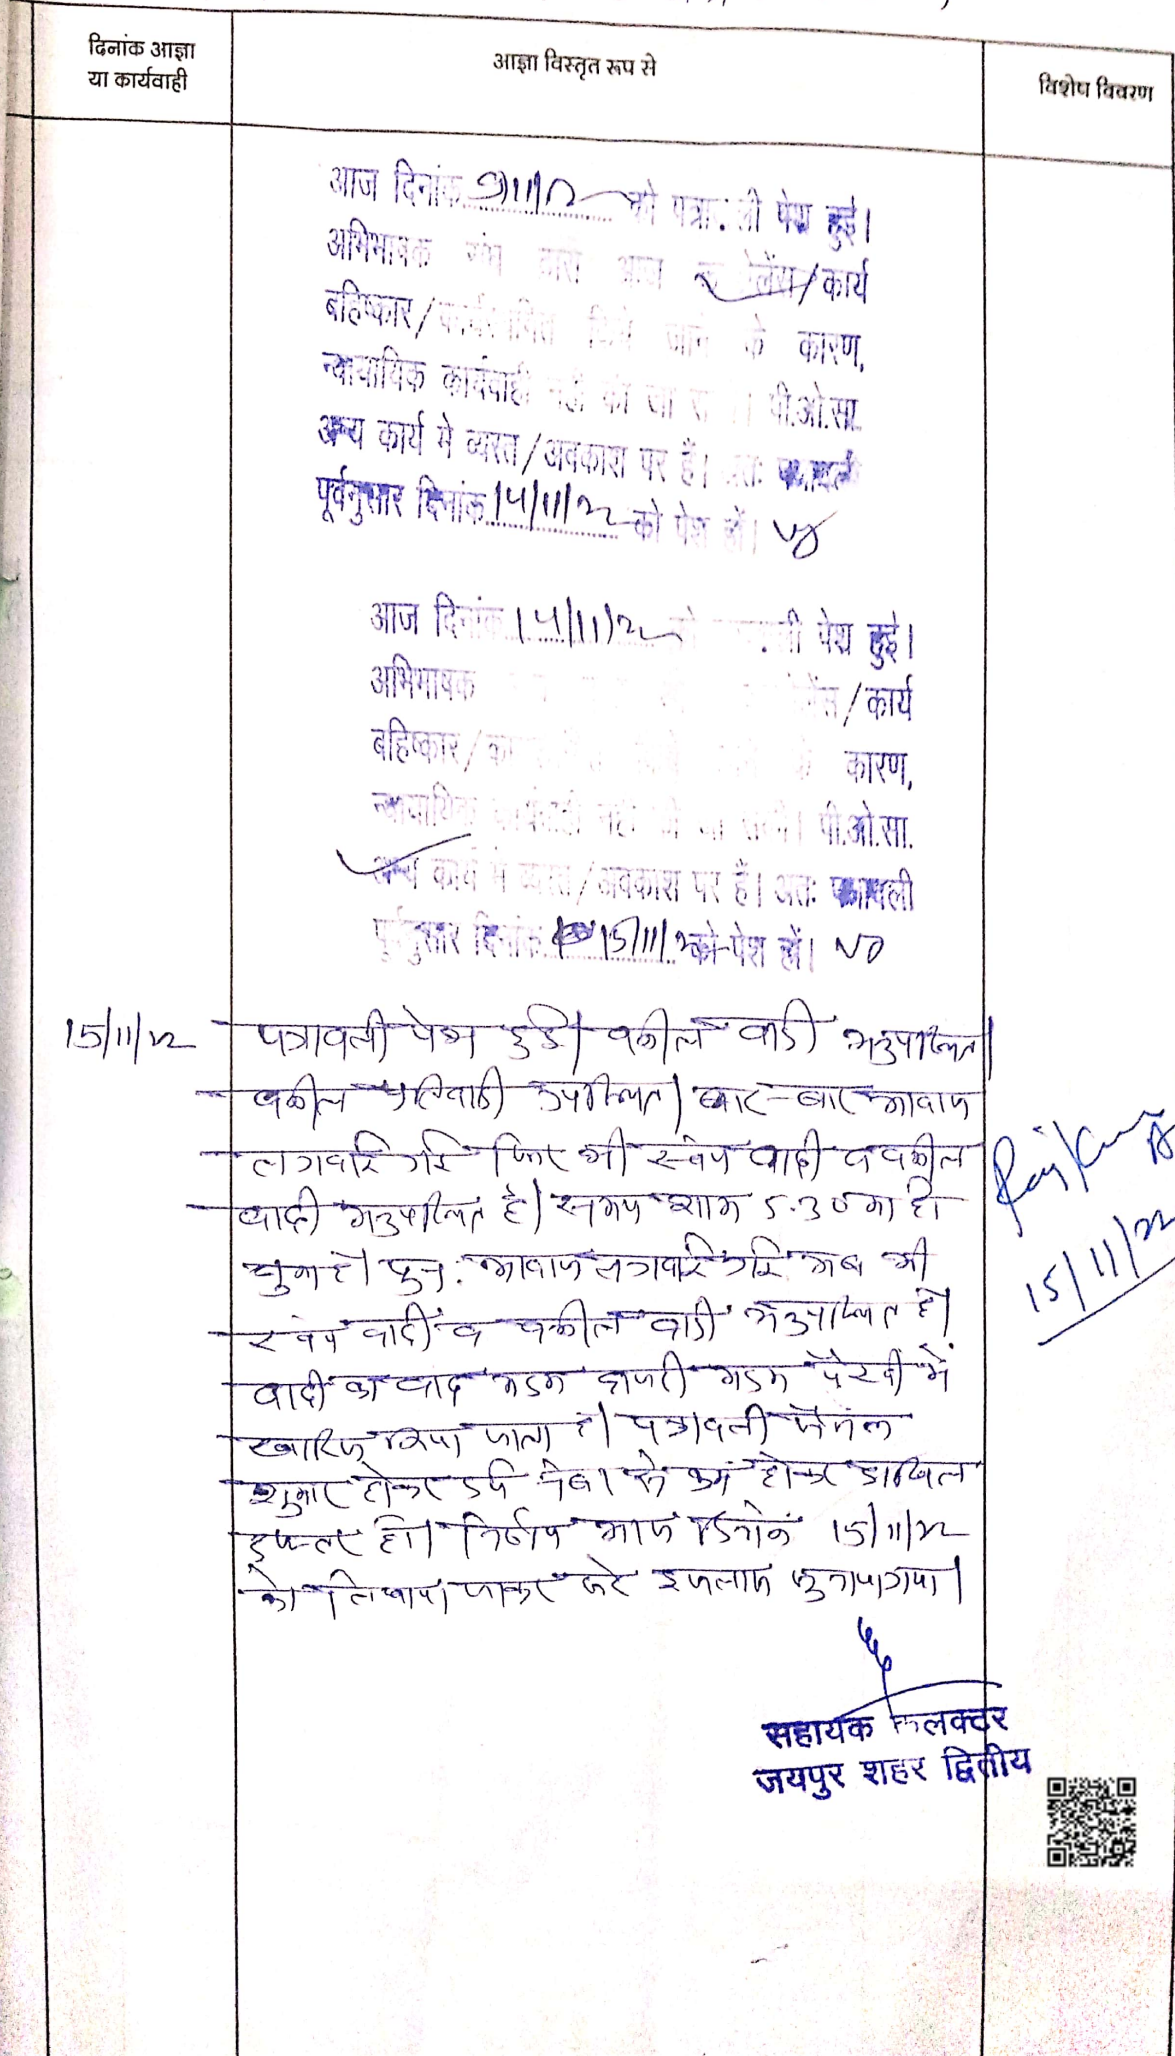 दिनांक आज्ञा
या कार्यवाही
आज्ञा विस्तृत रूप से
विशेष विवरण
आज दिनांक 9/11/22 को पत्रा.ली पेश हुई।
अभिभाषक संघ द्वारा आज /कार्य
बहिष्कार/ किये जाने के कारण,
न्यायायिक कार्यवाही नही की जा पी.ओ.सा.
अन्य कार्य मे व्यस्त/अवकाश पर हैं। अतः पत्रावली
पूर्वनुसार दिनांक 14/11/22 को पेश हों।
आज दिनांक 14/11/22 को ली पेश हुई।
अभिभाषक /कार्य
बहिष्कार/ कारण,
न्यायायिक कार्यवाही नही की जा सकी। पी.ओ.सा.
अन्य कार्य मे व्यस्त/अवकाश पर हैं। अतः पत्रावली
पूर्वनुसार दिनांक 15/11/22 को पेश हों।
15/11/22
पत्रावली पेश हुई। वकील वादी अनुपस्थित।
वकील प्रतिवादी उपस्थित। बार-बार आवाज
लगवाई गई फिर भी स्वंय वादी व वकील
वादी अनुपस्थित है। समय शाम 5.30 का हो
चुका है। पुन: आवाज लगवाई गई अब भी
स्वंय वादी व वकील वादी अनुपस्थित है।
वादी का वाद अदम हाजरी अदम पैरवी में
खारिज किया जाता है। पत्रावली फैसल
शुमार होकर दर्ज नंबर से कम होकर दाखिल
दफ्तर हो। निर्णय आज दिनांक 15/11/22
को लिखाया जाकर सरे इजलास सुनाया गया।
15/11/22
सहायक कलक्टर
जयपुर शहर द्वितीय